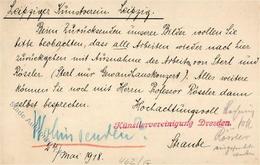 Leipziger Kunstverein. Leipzig.
Beim Zurücksenden unserer Bilder, wollen Sie
bitte beobachten, dass alle Arbeiten wieder nach hier
zurückgehen mit Ausnahme der Arbeiten von Sterl und
Rössler (Sterl nur Gewandhauskonzert). Alles weitere
können Sie noch mit Herrn Professor Rössler dann
selbst besprechen.
Hochachtungsvoll
Künstlervereinigung Dresden.
Wohin senden?
Mai 1918.